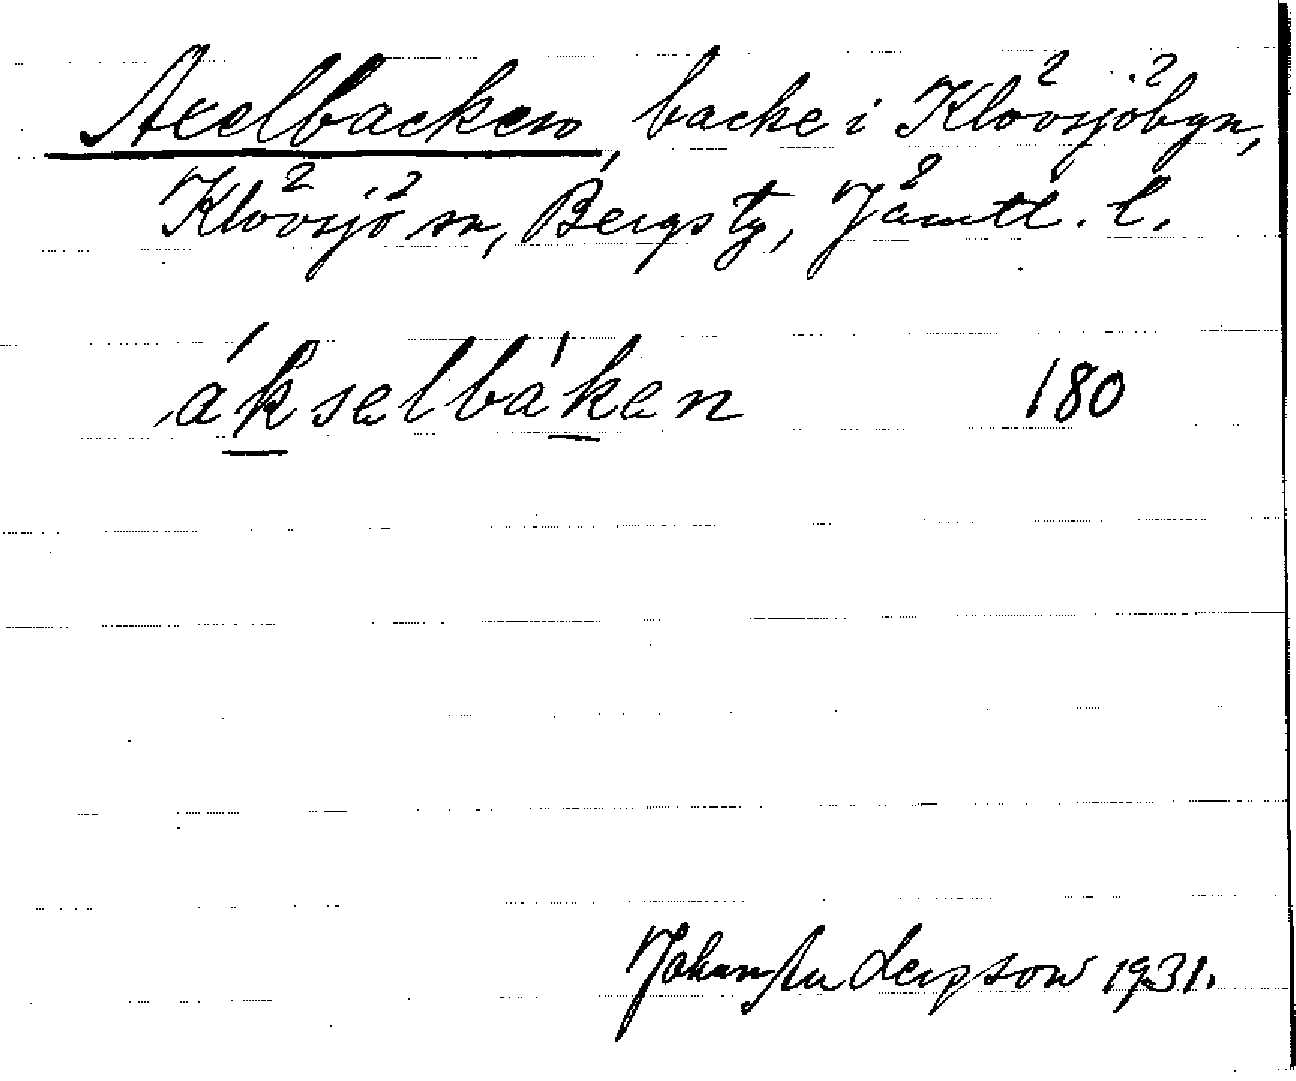 Axelbacken, backe i Klövsjöbyn,
Klövsjö sn, Bergs tg, Jämtl. l.
ákselbáken 180
Johan Andersson 1931.